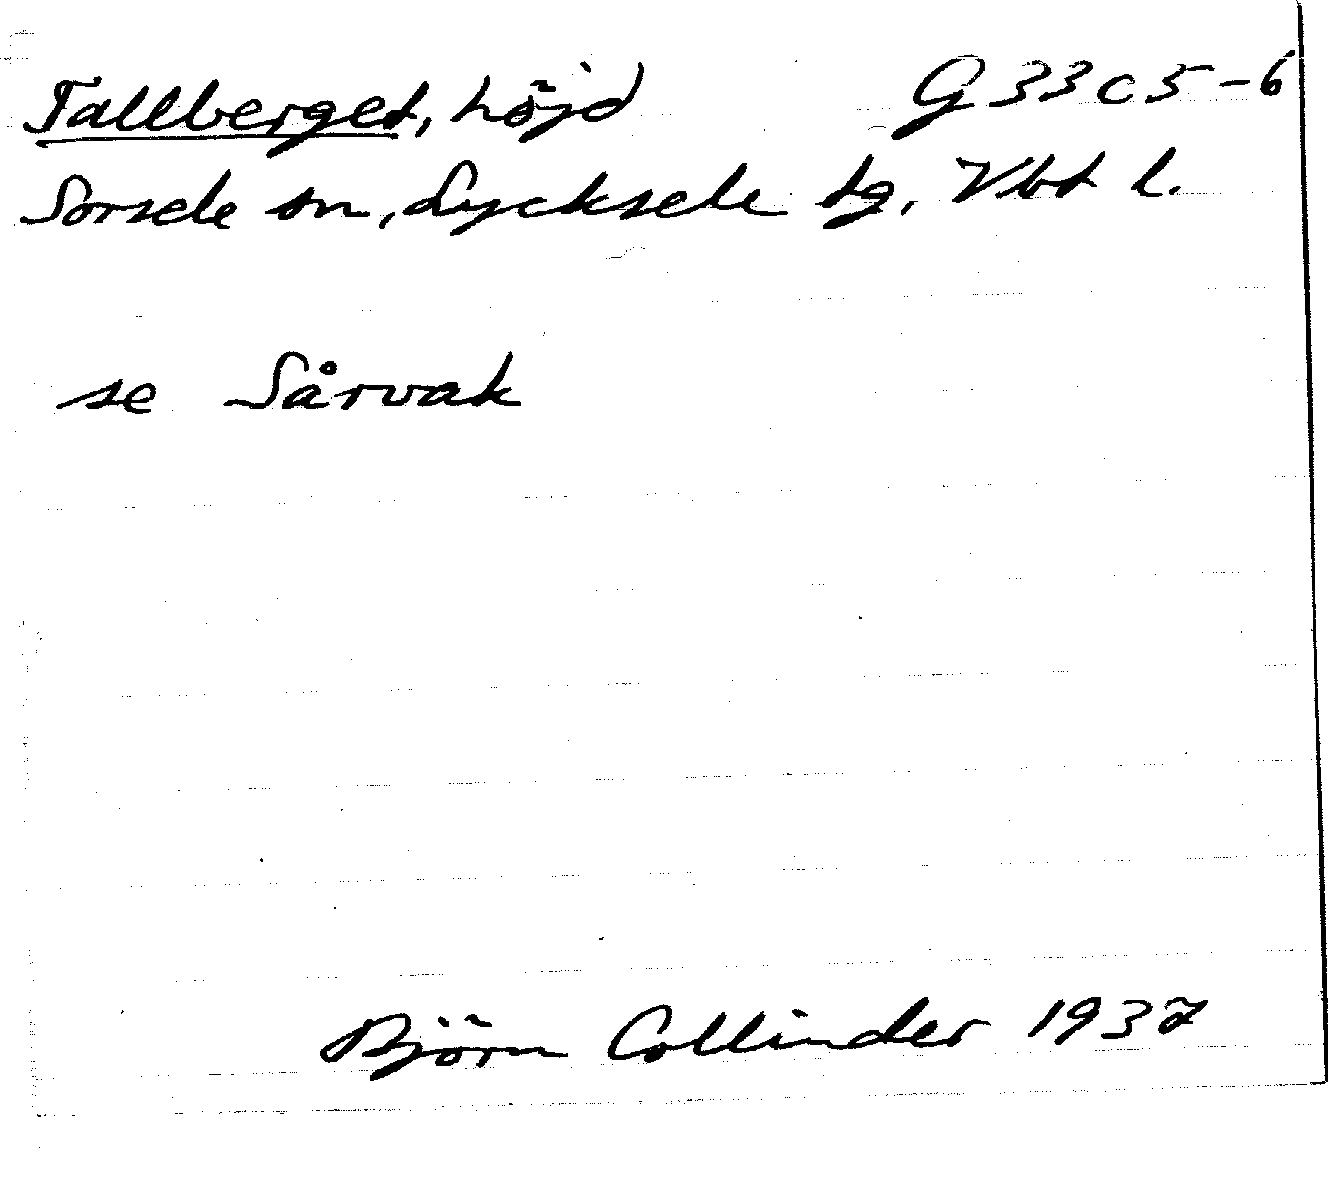 Tallberget, höjd G 33 c 5-6
Sorsele sn, Lycksele tg, Vbt l.
se Sårvak
Björn Collinder 1937